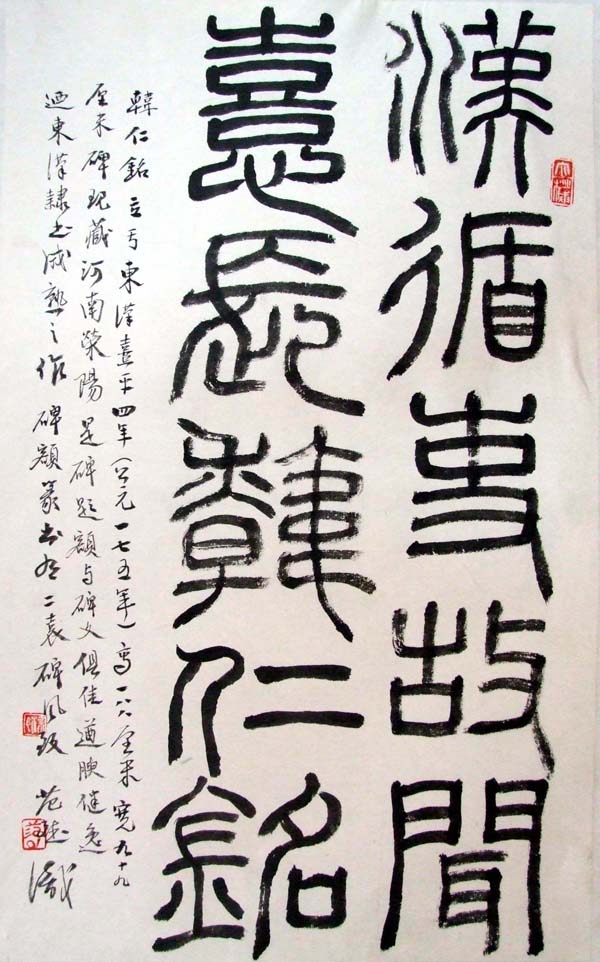 漢循吏故聞
憙長韓仁銘
韓仁銘立于東漢熹平四年(公元一七五年)高厘米寬九十九
厘米碑現藏河南滎陽是碑題額与碑文俱佳遒腴健逸
迺東漢隸書成熟之作碑額篆書有二袁碑風致 范識